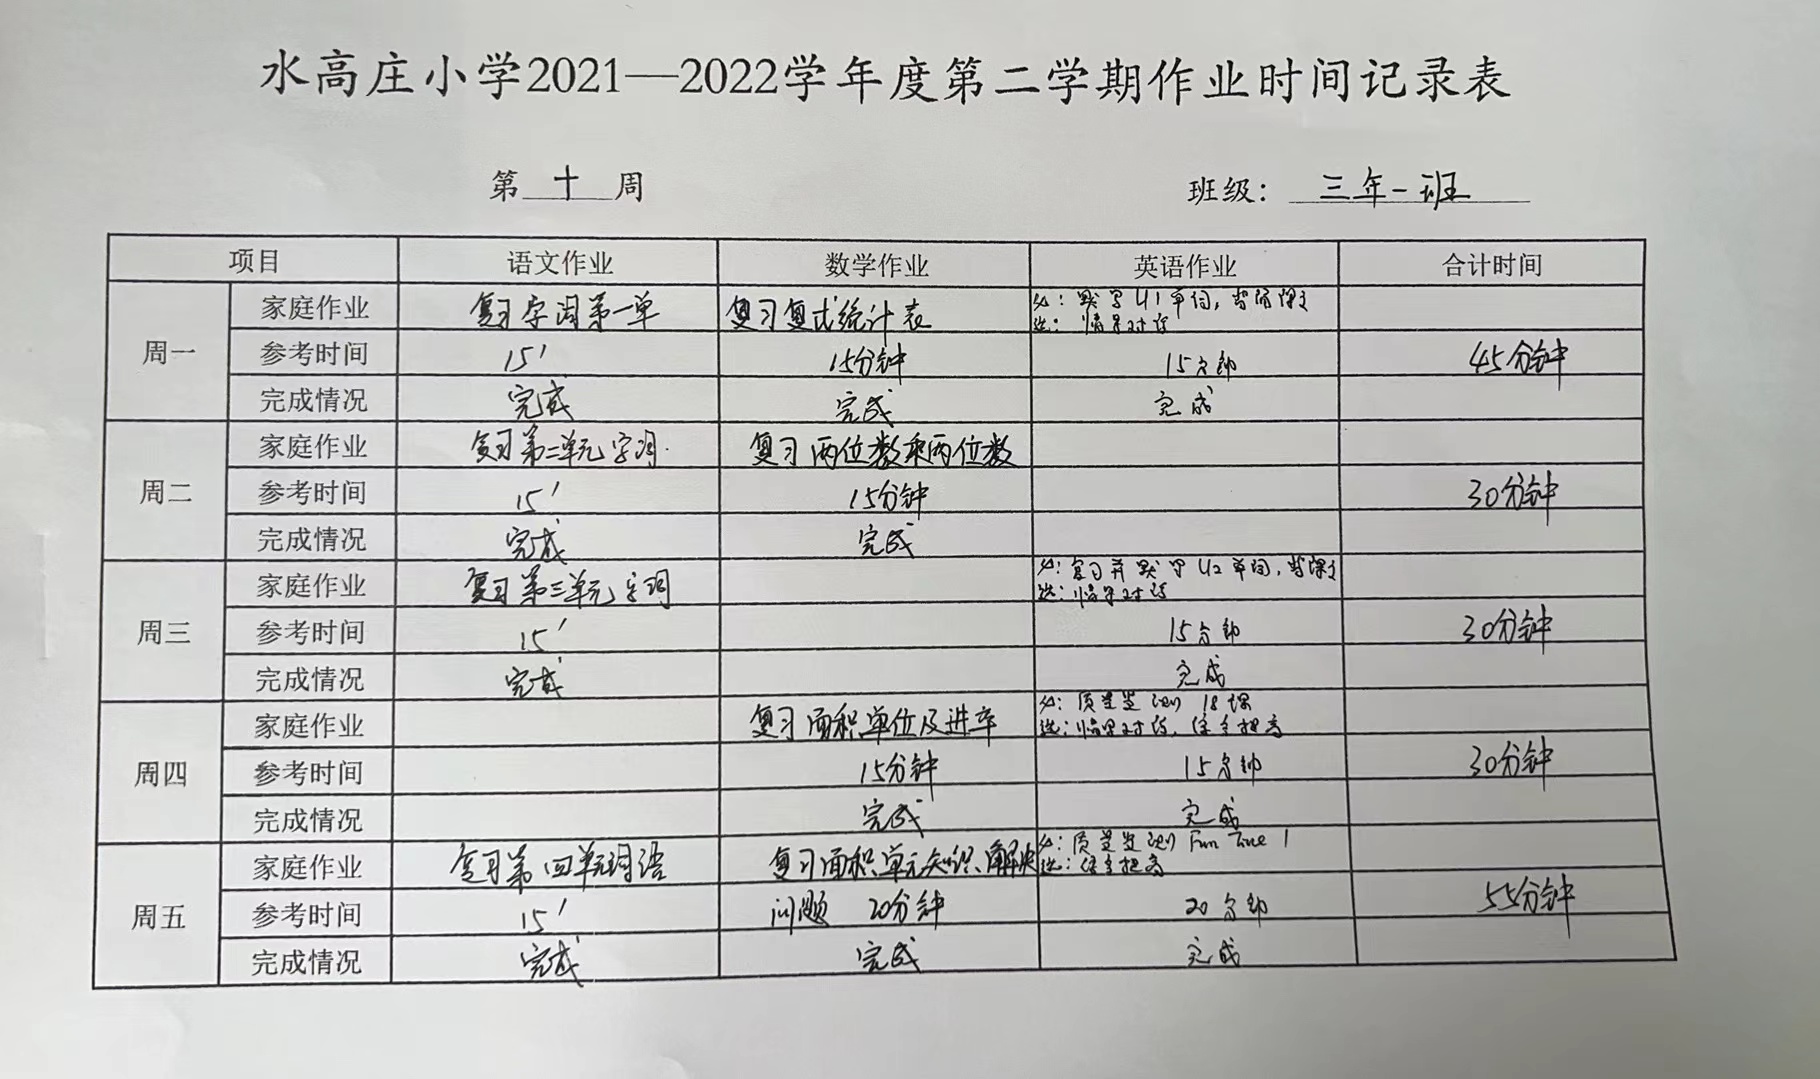 水高庄小学2021—2022学年度第二学期作业时间记录表
第 十 周 班级： 三年一班
项目 语文作业 数学作业 英语作业 合计时间
周一
家庭作业 复习字词第一单 复习复式统计表 必：默写U1单词，背诵课文
选：情景对话
参考时间 15' 15分钟 15分钟 45分钟
完成情况 完成 完成 完成
周二
家庭作业 复习第二单元字词. 复习两位数乘两位数
参考时间 15' 15分钟 30分钟
完成情况 完成 完成
周三
家庭作业 复习第三单元字词 必：复习并默写U2单词，背课文
选：情景对话
参考时间 15' 15分钟 30分钟
完成情况 完成 完成
周四
家庭作业 复习面积单位及进率 必：质量监测 18课
选：情景对话，任务提高
参考时间 15分钟 15分钟 30分钟
完成情况 完成 完成
周五
家庭作业 复习第四单元词语 复习面积单元知识、解决 必：质量监测 Fun Time 1
选：任务提高
参考时间 15' 问题 20分钟 20分钟 55分钟
完成情况 完成 完成 完成